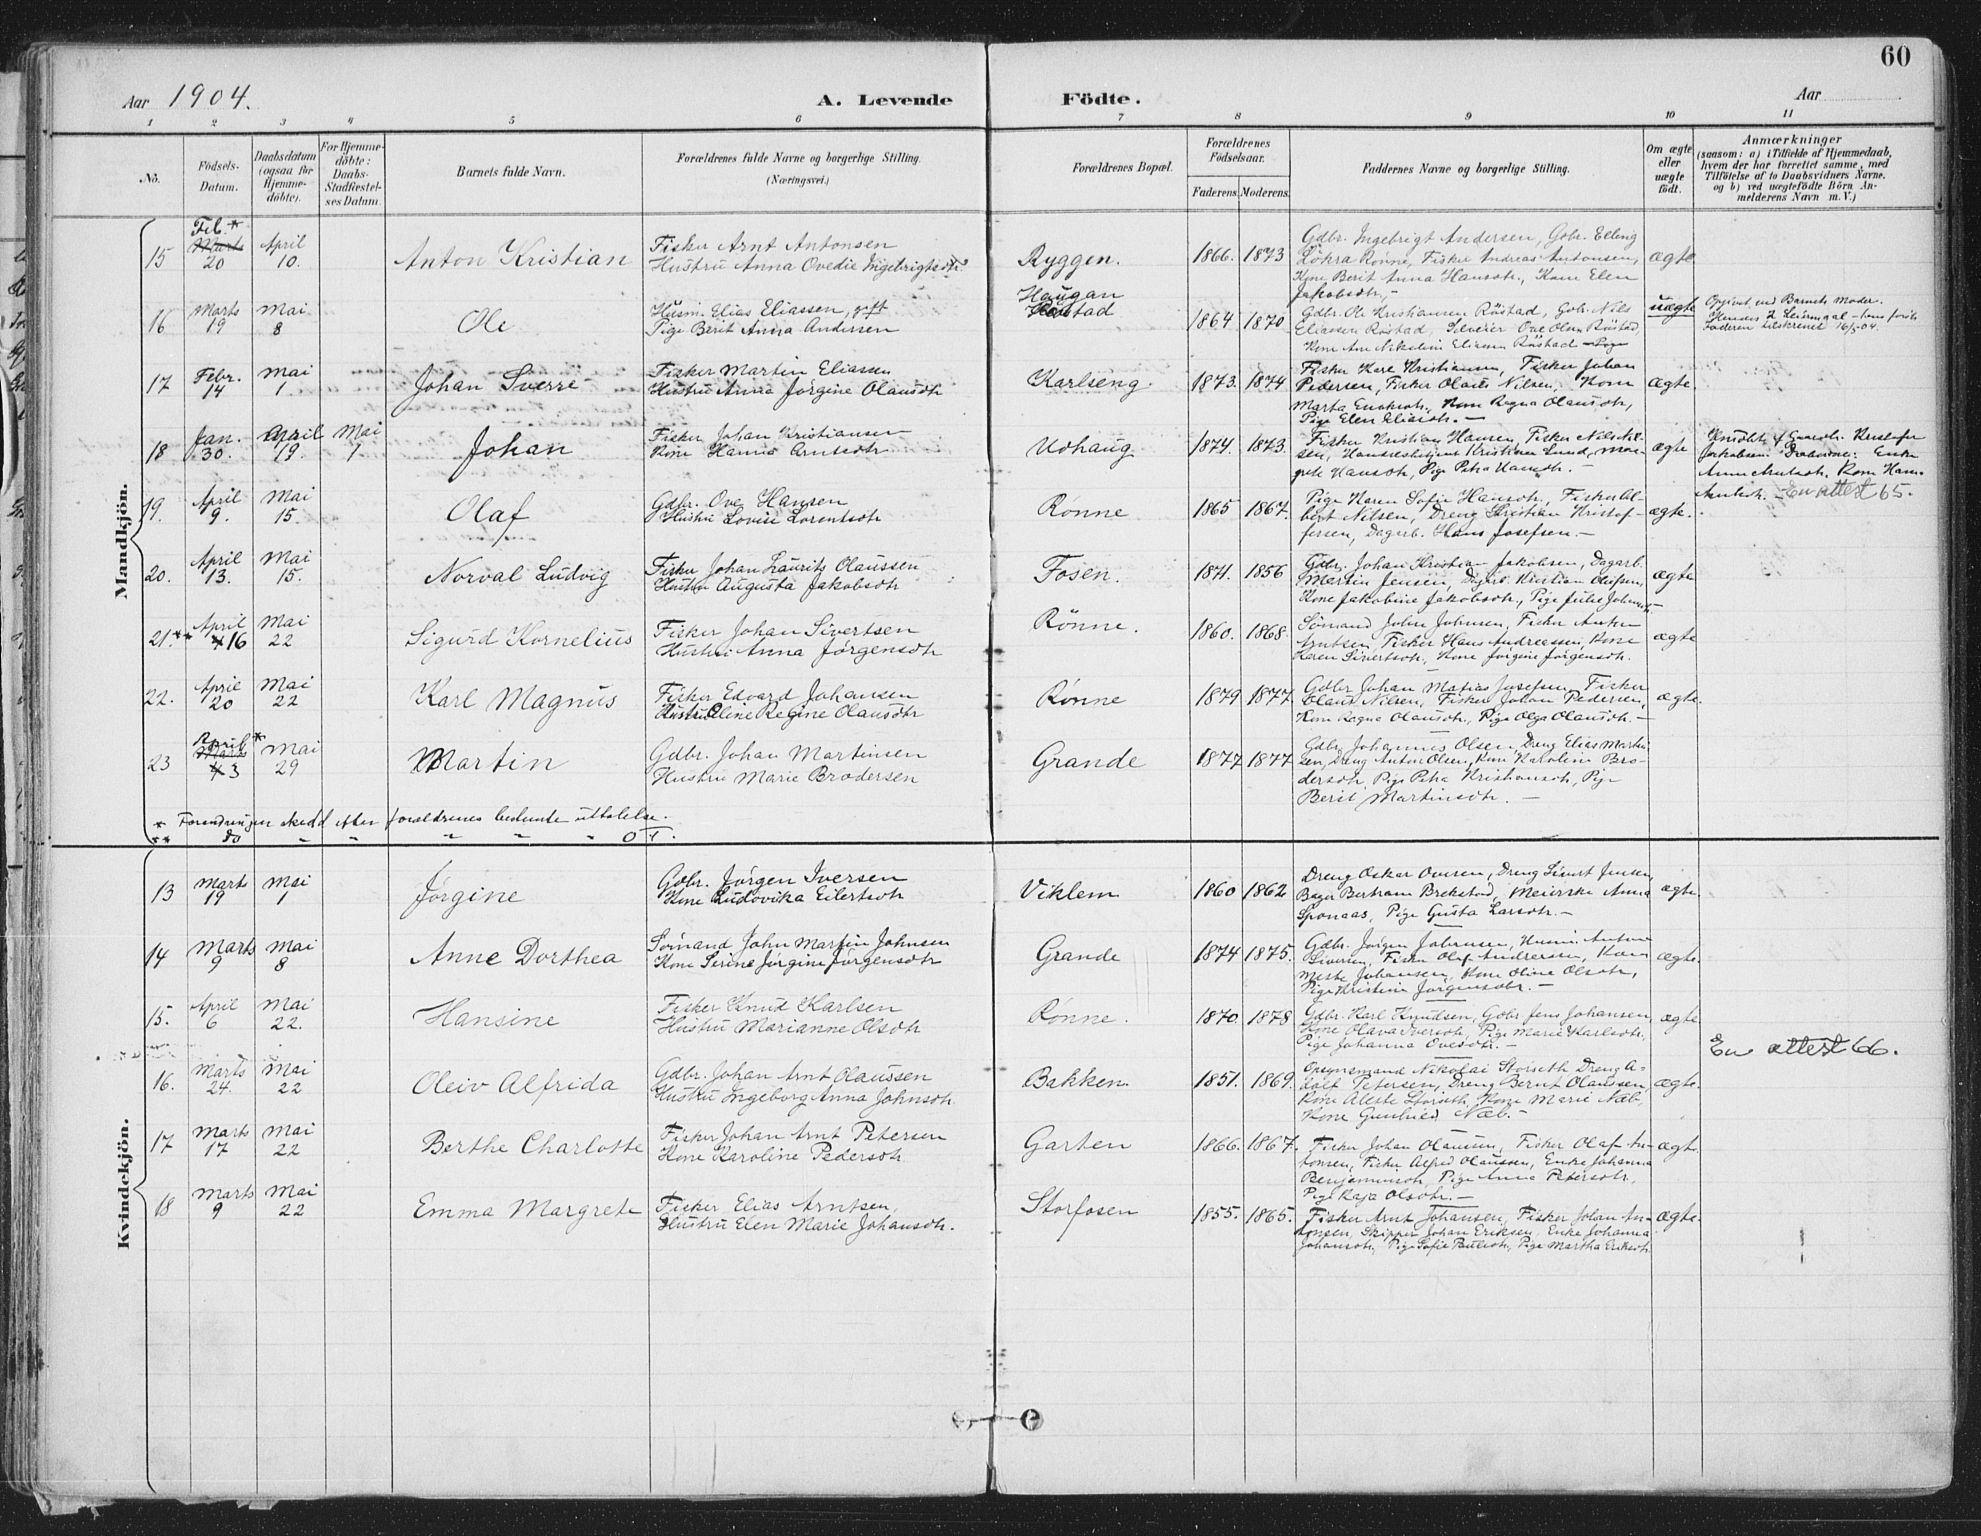 60
Aar 1904.
A. Levende Födte.
Aar
1 2 3 4 5 6 7 8 9 10 11
No.
Födsels-Datum.
Daabsdatum (ogsaa for Hjemme-döbte).
For Hjemme-döbte: Daabs-Stadfæstel-ses Datum.
Barnets fulde Navn.
Forældrenes fulde Navne og borgerlige Stilling.
(Næringsvei.)
Forældrenes Bopæl.
Forældrenes Födselsaar.
Faderens. Moderens.
Faddernes Navne og borgerlige Stilling.
Om ægte eller uægte födt.
Anmærkninger
(saasom: a) i Tilfælde af Hjemmedaab,
hvem der har forrettet samme, med
Tilföielse af to Daabsvidners Navne,
og b) ved uægtefödte Börn An-
melderens Navn m. V.)
Mandkjön.
15 Feb.* Marts 20 April 10. Anton Kristian
Fisker Arnt Antonsen
Hustru Anna Ovedie Ingebrigtsdtr.
Ryggen. 1866. 1873
Gdbr. Ingebrigt Andersen, Gdbr. Elling
Rønne, Fisker Andreas Antonsen,
Kone Berit Anna Hansdtr., Kone Elen
Jakobsdtr.
ægte
16 Marts 19 Mai 8 Ole
Husm. Elias Eliassen, gift
Pige Berit Anna Andersen
Haugan
Røstad 1864 1870
Gdbr. Ole Kristiansen Røstad, Gdb. Nils
Eliassen Røstad, Ove Olsen Røstad
Kone Ane Nikoline Eliasen Røstad - Pige
uægte
Opgivet ved Barnets Moder.
17 Febr. 14 Mai 1. Johan Sverre
Fisker Martin Eliassen
Hustru Anna Jørgine Olausdtr
Karlseng. 1873. 1874
Fisker Kare Kristiansen, Fisker Johan
Pedersen, Fisker Olaus Nilsen, Kone
Marta Enoksdtr., Kone Ragna Olausdtr.,
Pige Elen Eliasdtr. —
ægte.
18 Jan. 30. April 19. Mai 1 Johan
Fisker Johan Kristiansen
Kone Hanna Arntsdtr
Udhaug. 1874. 1873.
Fisker Kristian Hansen, Fisker Nils Nil-
sen, Kristian Lund, Mar-
grete Hansdtr, Pige Petra Hansdtr. —
ægte
Jakobsen.
Anne Arntsdtr. Kone Hanna
Arntsdtr. — En attest 65.
19. April 9. Mai 15. Olaf
Gdbr. Ove Hansen
Hustru Lovise Lorentsdtr
Rønne 1865 1867.
Pige Karen Sofie Hansdtr., Fisker Al-
bert Nilsen, Dreng Kristian Kristof-
fersen, Dagarb. Hans Josefsen. —
ægte.
20. April 13. Mai 15. Norval Ludvig
Fisker Johan Lauritz Olaussen
Hustru Augusta Jakobsdtr
Fosen. 1871. 1856
Gdbr. Johan Kristian Jakobsen, Dagarb.
Martin Jensen, Dagarb. Kristian Olufsen,
Kone Jakobine Jakobsdtr., Pige Julie Johansdtr.
ægte
21.** April 16 Mai 22 Sigurd Kornelius
Fisker Johan Sivertsen
Hustru Anna Jørgensdtr
Rønne. 1860. 1868.
Sømand John Johnsen, Fisker Anton
Arntsen, Fisker Hans Andreassen, Kone
Karen Sivertsdtr, Kone Jørgine Jørgensdtr.
ægte
22. April 20 Mai 22 Karl Magnus
Fisker Edvard Johansen
Hustru Oline Regine Olausdtr
Rønne 1879 1877.
Gdbr. Johan Matias Josefsen, Fisker
Olaus Nilsen, Fisker Johan Pedersen,
Kone Ragna Olausdtr., Pige Olga Olausdtr. —
ægte.
23 April* Marts 3 Mai 29 Martin
Gdbr. Johan Martinsen
Hustru Marie Brodersen
Grande 1877 1877
Gdbr. Johannes Olsen, Dreng Elias Martin-
sen, Dreng Anton Olsen, Kone Karoline Bro-
dersdtr, Pige Petra Kristiansdtr, Pige
Berit Martinsdtr. —
* Forandringer skedd etter forældrenes bestemte uttalelse.
** do " " " " " OT.
Kvindekjön.
13 Marts 19 Mai 1 Jørgine
Gdbr. Jørgen Iversen
Kone Ludovika Eilertsdtr
Viklem 1860 1862
Dreng Oskar Ovesen, Dreng Sivert Jensen,
Bager Bertram Brekstad, Meierske Anna
Sponaas, Pige Gusta Larsdtr. —
ægte.
14 Marts 9 Mai 8 Anne Dorthea
Sømand John Martin Johnsen
Kone Serine Jørgine Jørgensdtr
Grande 1874 1875.
Gdbr. Jørgen Johansen, Husm. Anton
Iversen, Fisker Olaf Andreassen, Kone
Johansen, Kone Oline Olsdtr,
Pige Kristine Jørgensdtr. —
ægte.
15. April 6 Mai 22. Hansine
Fisker Knud Karlsen
Hustru Marianne Olsdtr
Rønne. 1870. 1878
Gdbr. Karl Knudsen, Gdbr. Jens Johansen
Kone Olava Iversdtr, Pige Marie Karlsdtr.
Pige Johanna Ovesdtr. —
ægte
En attest 66.
16. Marts 24. Mai 22 Oleiv Alfrida
Gdbr. Johan Arnt Olaussen
Hustru Ingeborg Anna Johnsdtr.
Bakken. 1851. 1869.
Opsynsmand Nikolai Storseth Dreng A-
dolf Petersen, Dreng Bernt Olaussen,
Kone Aleste Storseth, Kone Marie Næb,
Kone Gunhild Næb. —
ægte.
17 Marts 17 Mai 22 Berthe Charlotte
Fisker Johan Arnt Petersen
Kone Karoline Pedersdtr.
Garten 1866. 1867.
Fisker Johan Olaussen, Fisker Olaf An-
tonsen, Fisker Alfred Olaussen, Enke Johanna
Benjaminsdtr., Pige Anna Petersdtr.,
Pige Kaja Olsdtr. —
ægte.
18 Marts 9 Mai 22 Emma Margrete
Fisker Elias Arntsen,
Hustru Elen Marie Johansdtr.
Storfosen 1855. 1865.
Fisker Arnt Johansen, Fisker Johan An-
tonsen, Skipper Johan Eriksen, Enke Johanna
Johansdtr, Pige Sofie Paulsdtr, Pige Martha Eriksdtr
ægte.